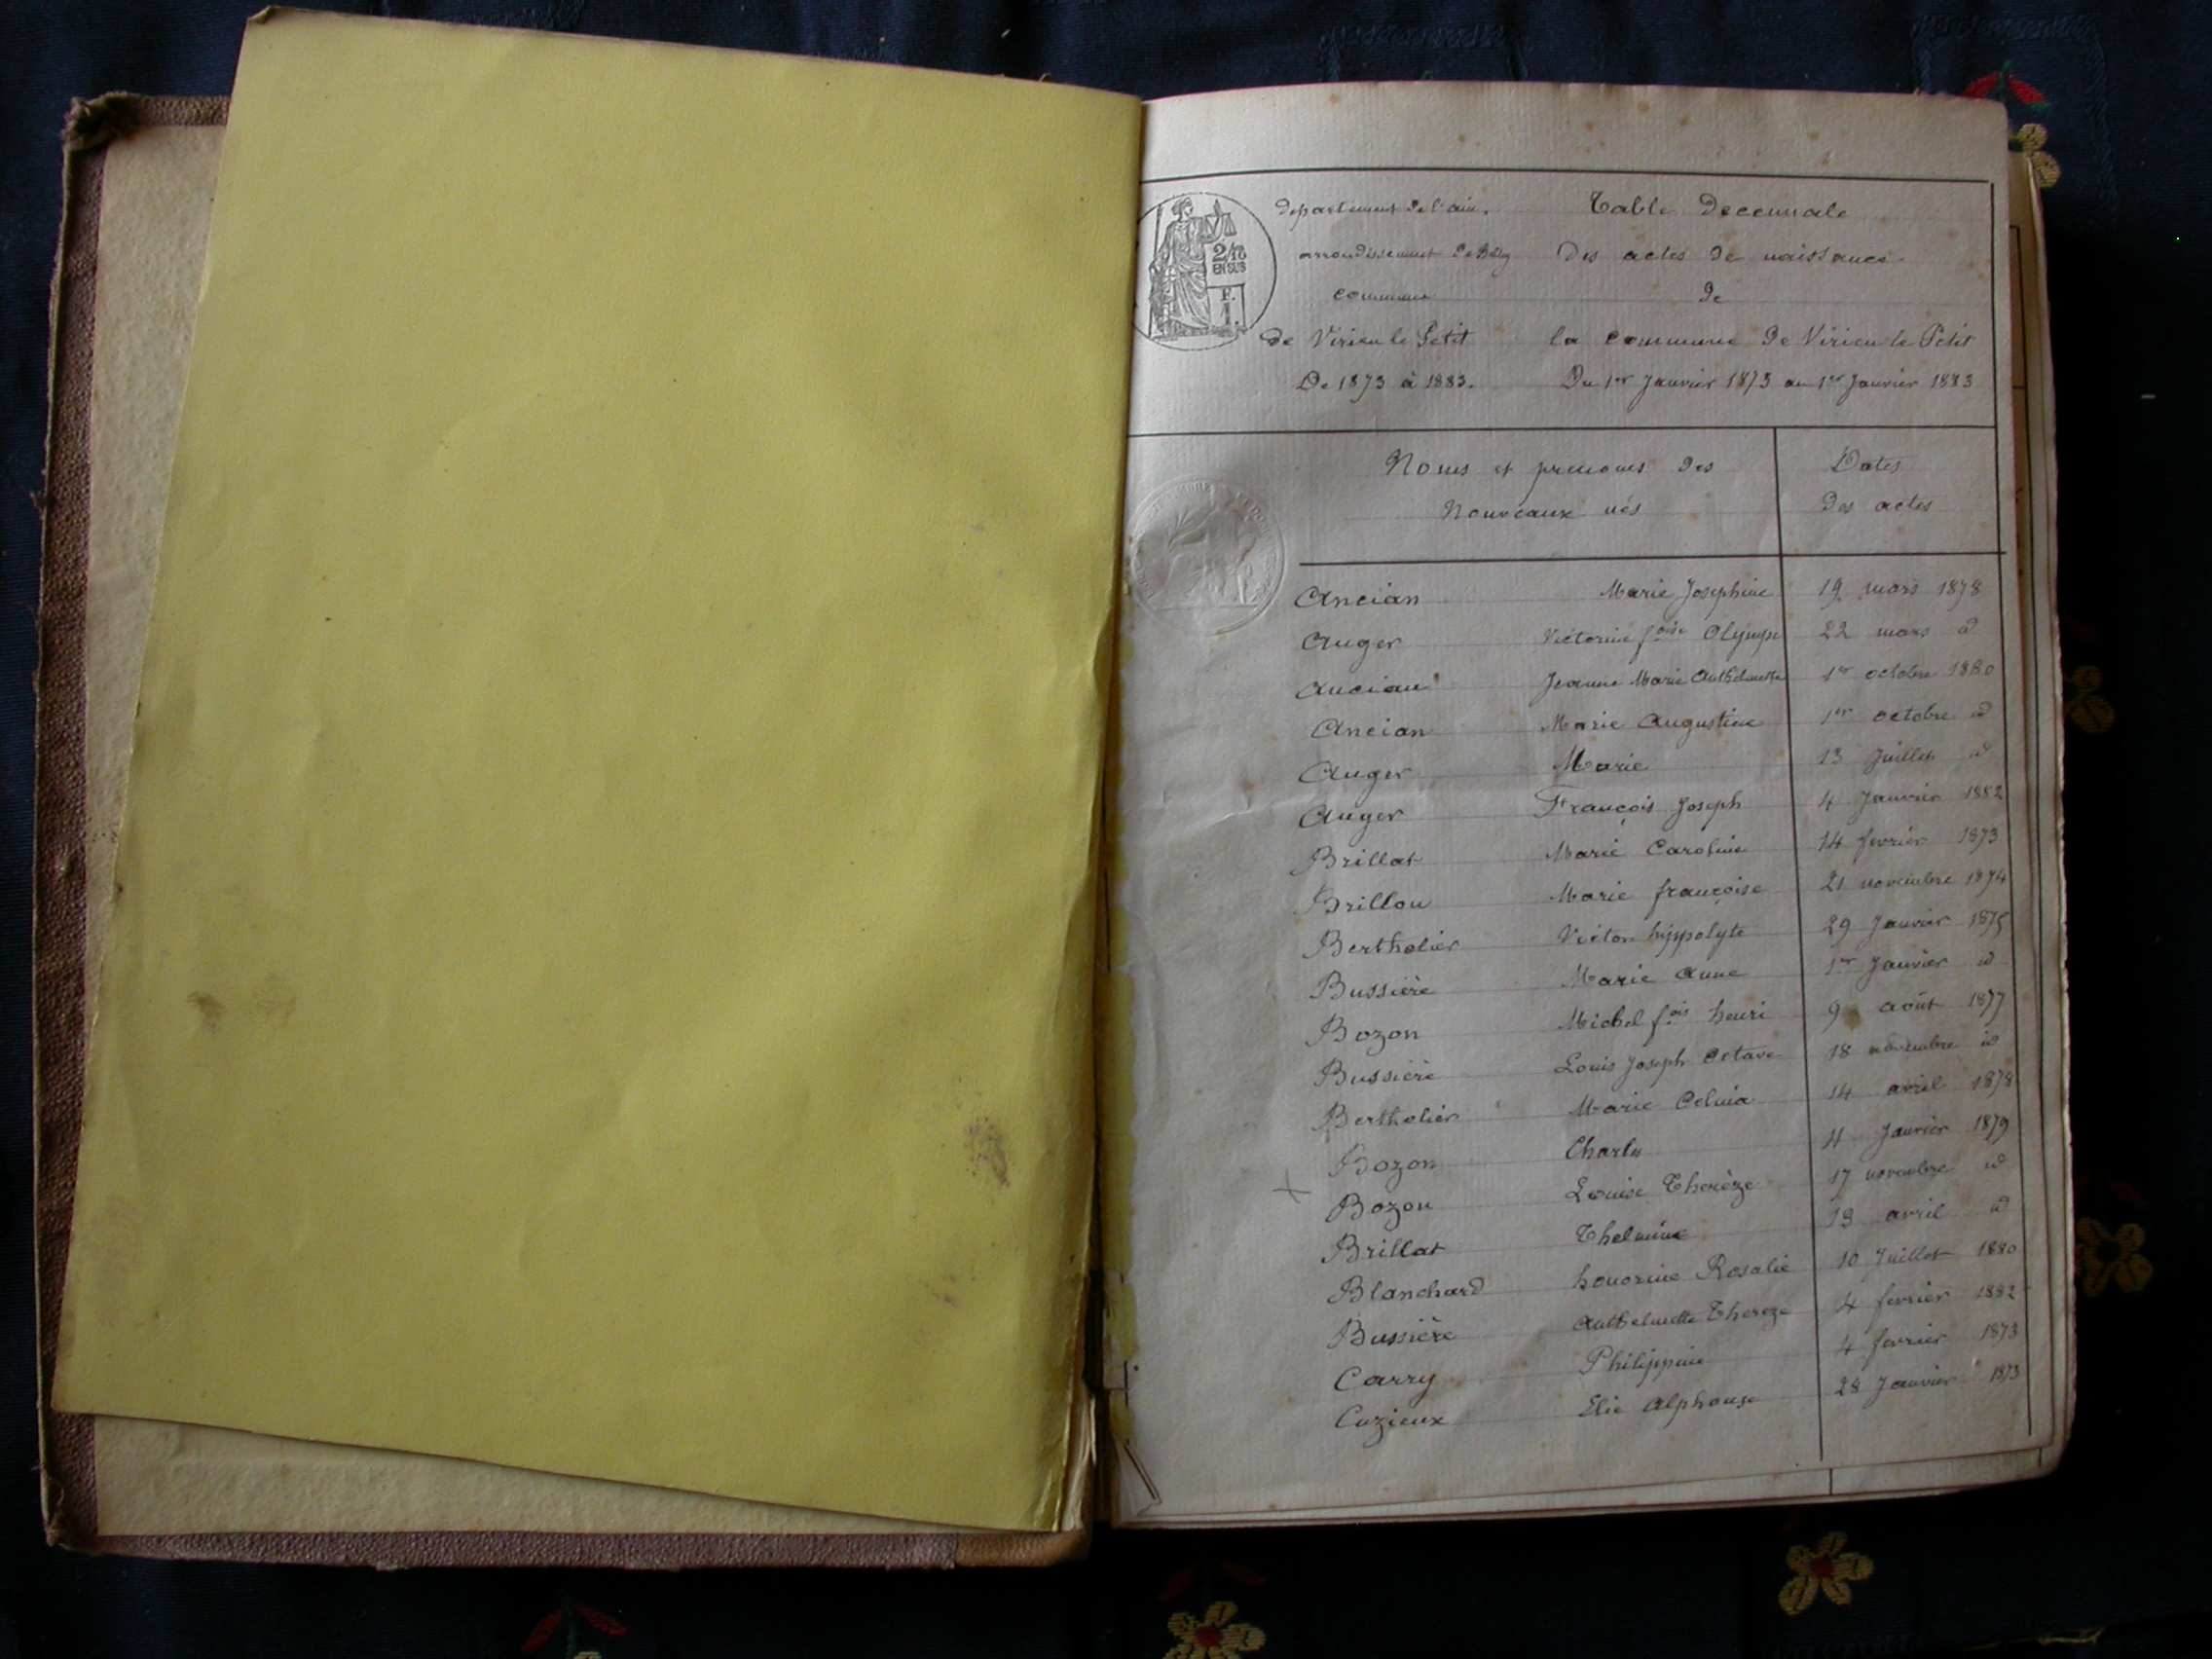 departement de l'ain. Table Decennale
arrondissement de Belley Des actes de naissance
commune de
de Virieu le Petit la commune de Virieu le Petit
De 1873 à 1883. Du 1er Janvier 1873 au 1er Janvier 1883
2/10
EN SUS
F.
1.
Noms et prenoms des Dates
Nouveaux nés Des actes
Ancian Marie Josephine 19 mars 1878
Auger Victorine foise Olympe 22 mars id
Ancian Jeanne Marie Anthelmette 1er octobre 1880
Ancian Marie Augustine 1er octobre id
Auger Marie 13 Juillet id
Auger François Joseph 4 Janvier 1882
Brillat Marie Caroline 14 fevrier 1873
Brillou Marie françoise 21 novembre 1874
Bertholier Victor hyppolyte 29 Janvier 1875
Bussière Marie Anne 1er Janvier id
Bozon Michel fois henri 9 août 1877
Bussière Louis Joseph Octave 18 novembre id
Bertholier Marie Celina 14 avril 1878
Bozon Charles 4 Janvier 1879
Bozon Louise Therèze 17 novembre id
Brillat Thelmine 19 avril id
Blanchard honorine Rosalie 10 Juillet 1880
Bussière Anthelmette Thereze 4 fevrier 1882
Carry Philippine 4 fevrier 1873
Cuzieux Elie Alphonse 28 Janvier 1873